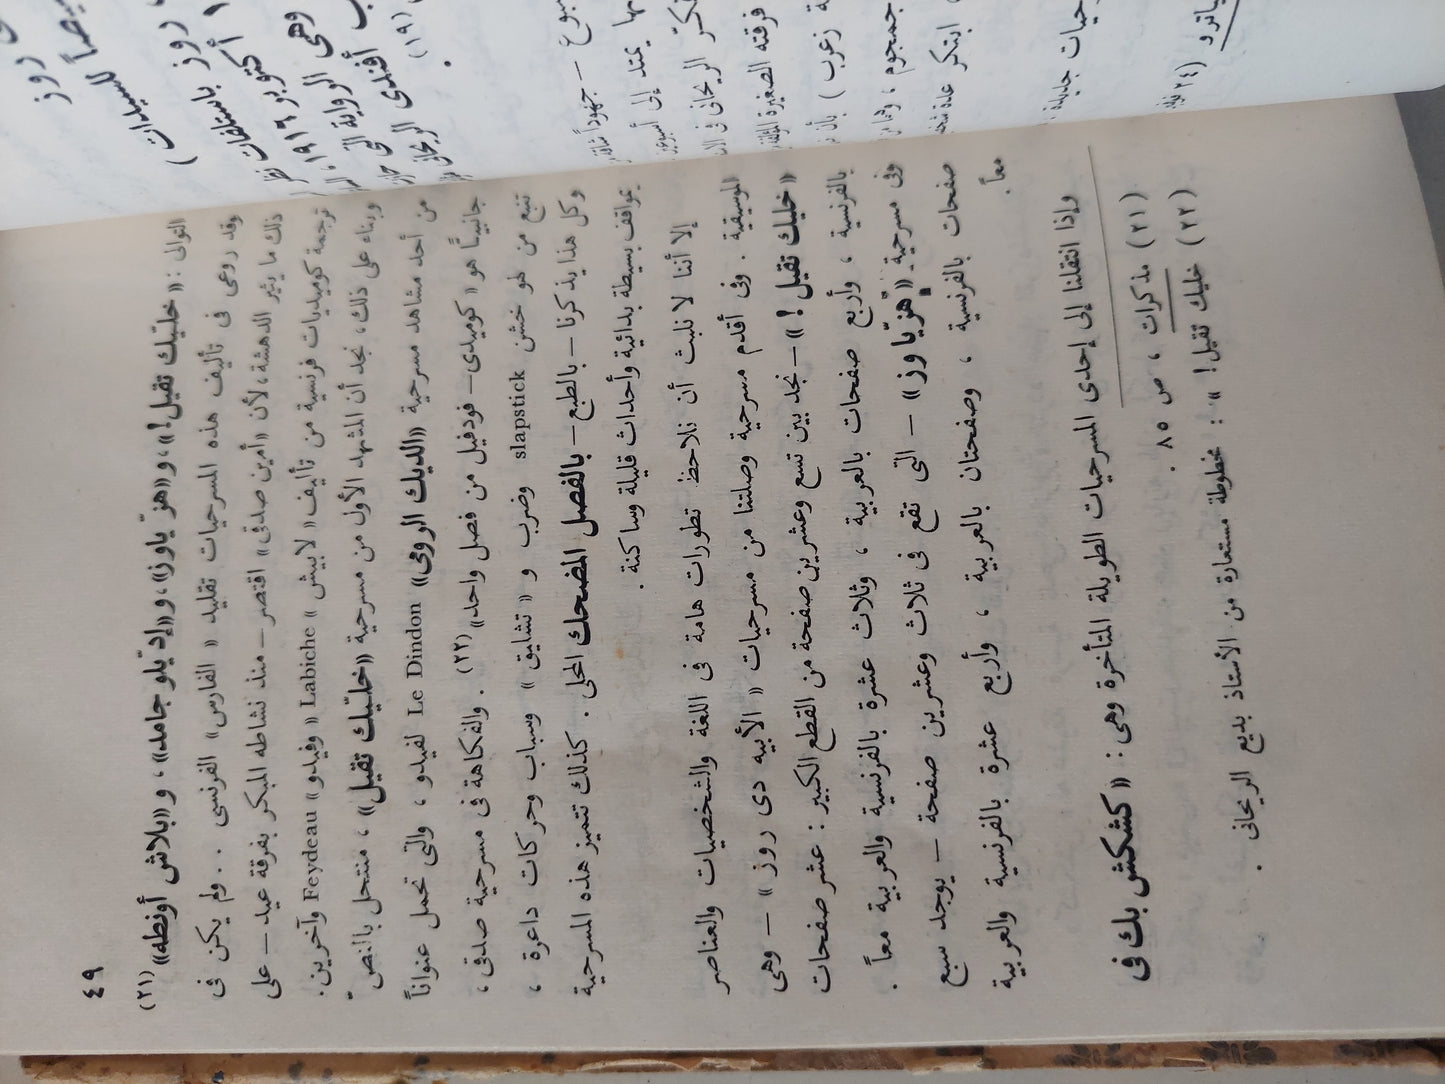 ٤٩
التوالى : « خليّك تقيل ! » ، و « هزّ ياوز » ، و « إدّيلو جامد » ، و « بلاش أونطه » (٢١)
وقد روعى فى تأليف هذه المسرحيات تقليد « الفارس » الفرنسى . . ولم يكن فى
ذلك ما يثير الدهشة ، لأن « أمين صدقى » اقتصر – منذ نشاطه المبكر بفرقة عيد – على
ترجمة كوميديات فرنسية من تأليف « لابيش » Labiche « وفيدو » Feydeau وآخرين .
وبناء على ذلك ، نجد أن المشهد الأول من مسرحية « خليّك تقيل » ، منتحل بالنصّ
من أحد مشاهد مسرحية « الديك الرومى » Le Dindon لفيدو ، والتى تحمل عنواناً
جانبيًا هو « كوميدى – فودفيل من فصل واحد » (٢٢) . والفكاهة فى مسرحية صدقى ،
تنبع من لهو خشن slapstick وضرب و « تشاليق » وسباب وحركات داعرة ،
وكل هذا يذكرنا – بالطبع – بالفصل المضحك المحلى . كذلك تتميز هذه المسرحية
بمواقف بسيطة بدائية وأحداث قليلة وساكنة .
إلا أننا لا نلبث أن نلاحظ تطورات هامة فى اللغة والشخصيات والعناصر
الموسيقية . وفى أقدم مسرحية وصلتنا من مسرحيات « الأبيه دى روز » – وهى
« خليك تقيل ! » – نجد بين تسع وعشرين صفحة من القطع الكبير : عشر صفحات
بالفرنسية ، وأربع صفحات بالعربية ، وثلاث عشرة بالفرنسية والعربية معاً .
وفى مسرحية « هزّ ياوز » – التى تقع فى ثلاث وعشرين صفحة – يوجد سبع
صفحات بالفرنسية ، وصفحتان بالعربية ، وأربع عشرة بالفرنسية والعربية
معاً .
وإذا انتقلنا إلى إحدى المسرحيات الطويلة المتأخرة وهى : « كشكش بك فى
(٢١) مذكرات ، ص ٨٥ .
(٢٢) خليك تقيل ! » : مخطوطة مستعارة من الأستاذ بديع الريحانى .
روز
للسيدات )
روز باستلفات نظر
أكتوبر ١٩١٦ ،
وهى الرواية التى
أفندى الريحانى
(١٩) .
جهوداً
يمتد إلى
الريحانى فى
فرقته الصغيرة
زعرب )
جمجوم ،
ابتكر عدة
حيات جديدة
(٢٤